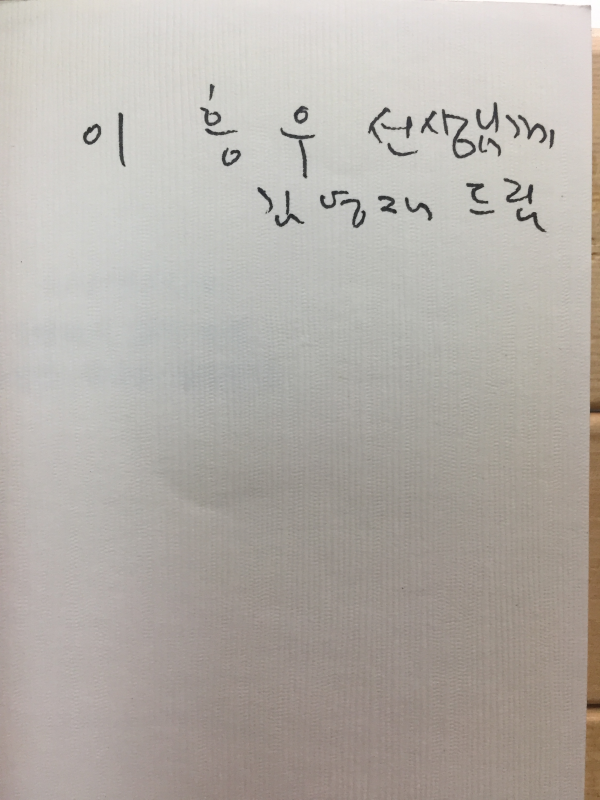 이 흥 우 선생님께
김병래 드림